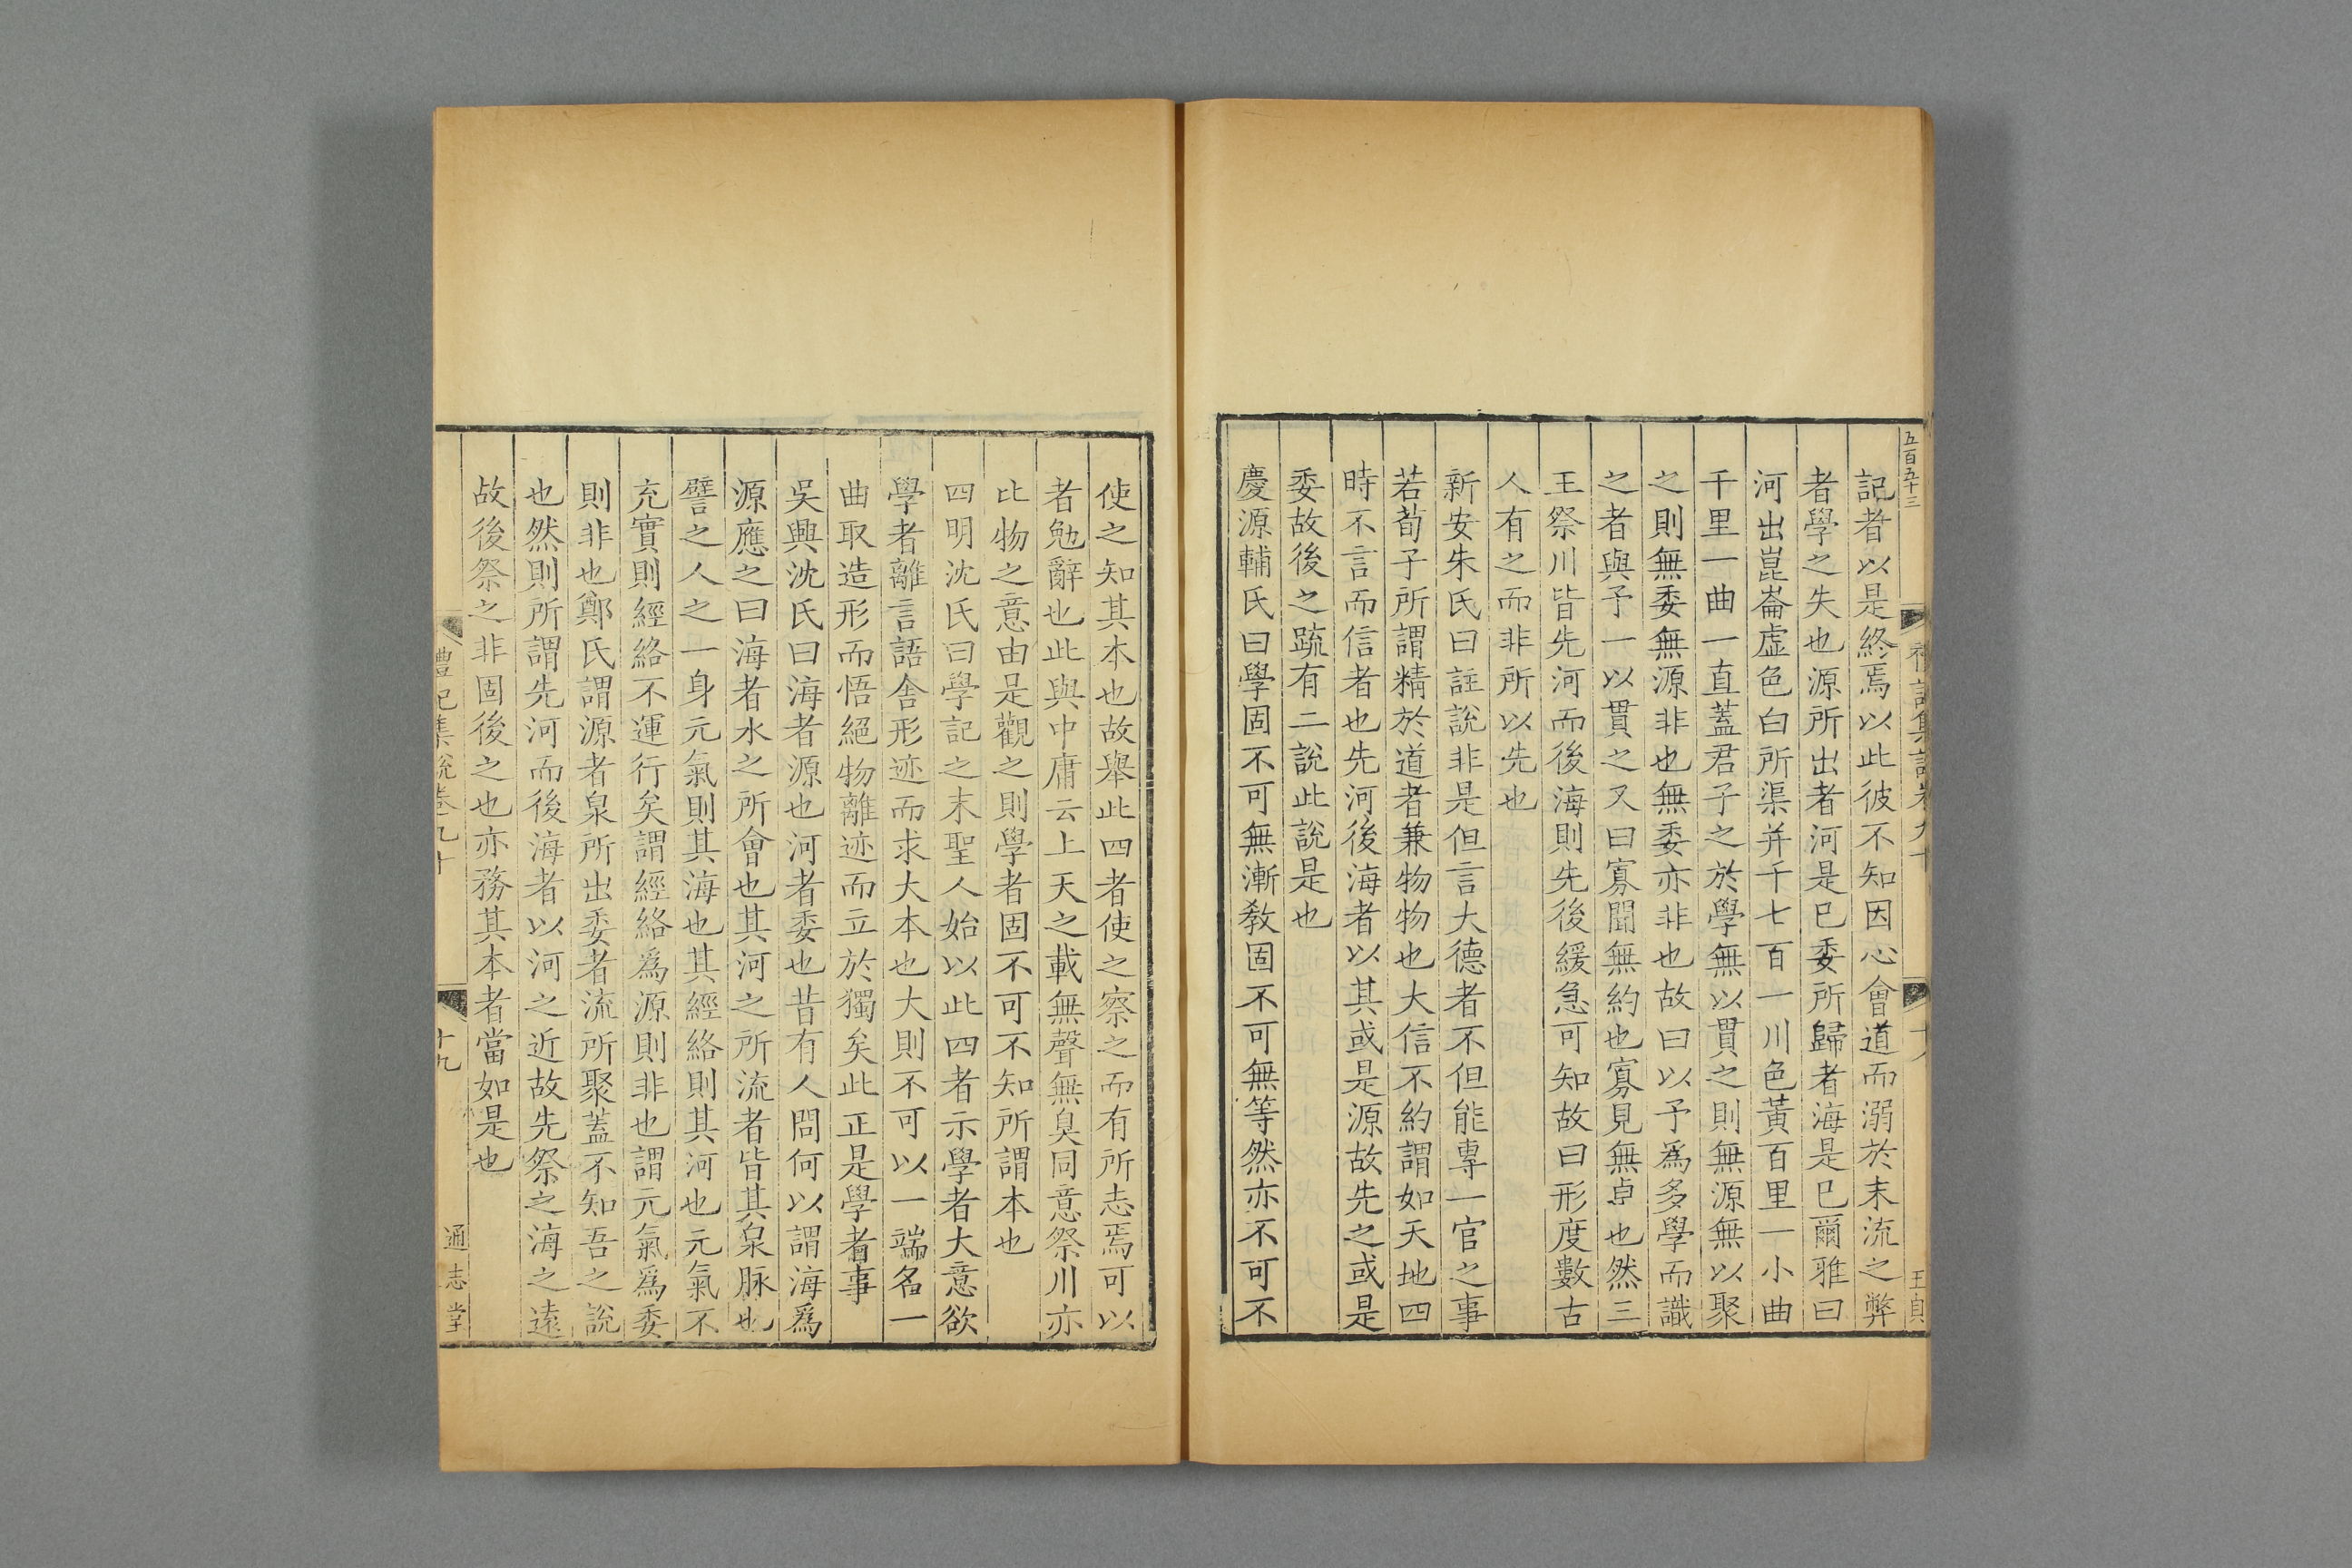 五百五十三
禮記集說卷九十
十八
王貞
記者以是終焉以此彼不知因心會道而溺於末流之弊
者學之失也源所出者河是巳委所歸者海是巳爾雅曰
河出崑崙虛色白所渠并千七百一川色黃百里一小曲
千里一曲一直蓋君子之於學無以貫之則無源無以聚
之則無委無源非也無委亦非也故曰以予爲多學而識
之者與予一以貫之又曰寡聞無約也寡見無卓也然三
王祭川皆先河而後海則先後緩急可知故曰形度數古
人有之而非所以先也
新安朱氏曰註說非是但言大德者不但能專一官之事
若荀子所謂精於道者兼物物也大信不約謂如天地四
時不言而信者也先河後海者以其或是源故先之或是
委故後之䟽有二說此說是也
慶源輔氏曰學固不可無漸教固不可無等然亦不可不
使之知其本也故舉此四者使之察之而有所志焉可以
者勉辭也此與中庸云上天之載無聲無臭同意祭川亦
比物之意由是觀之則學者固不可不知所謂本也
四明沈氏曰學記之末聖人始以此四者示學者大意欲
學者離言語舍形迹而求大本也大則不可以一端名一
曲取造形而悟絕物離迹而立於獨矣此正是學者事
吳興沈氏曰海者源也河者委也昔有人問何以謂海爲
源應之曰海者水之所會也其河之所流者皆其泉脉也
譬之人之一身元氣則其海也其經絡則其河也元氣不
充實則經絡不運行矣謂經絡爲源則非也謂元氣爲委
則非也鄭氏謂源者泉所出委者流所聚蓋不知吾之說
也然則所謂先河而後海者以河之近故先祭之海之遠
故後祭之非固後之也亦務其本者當如是也
禮記集說卷九十
十九
通志堂